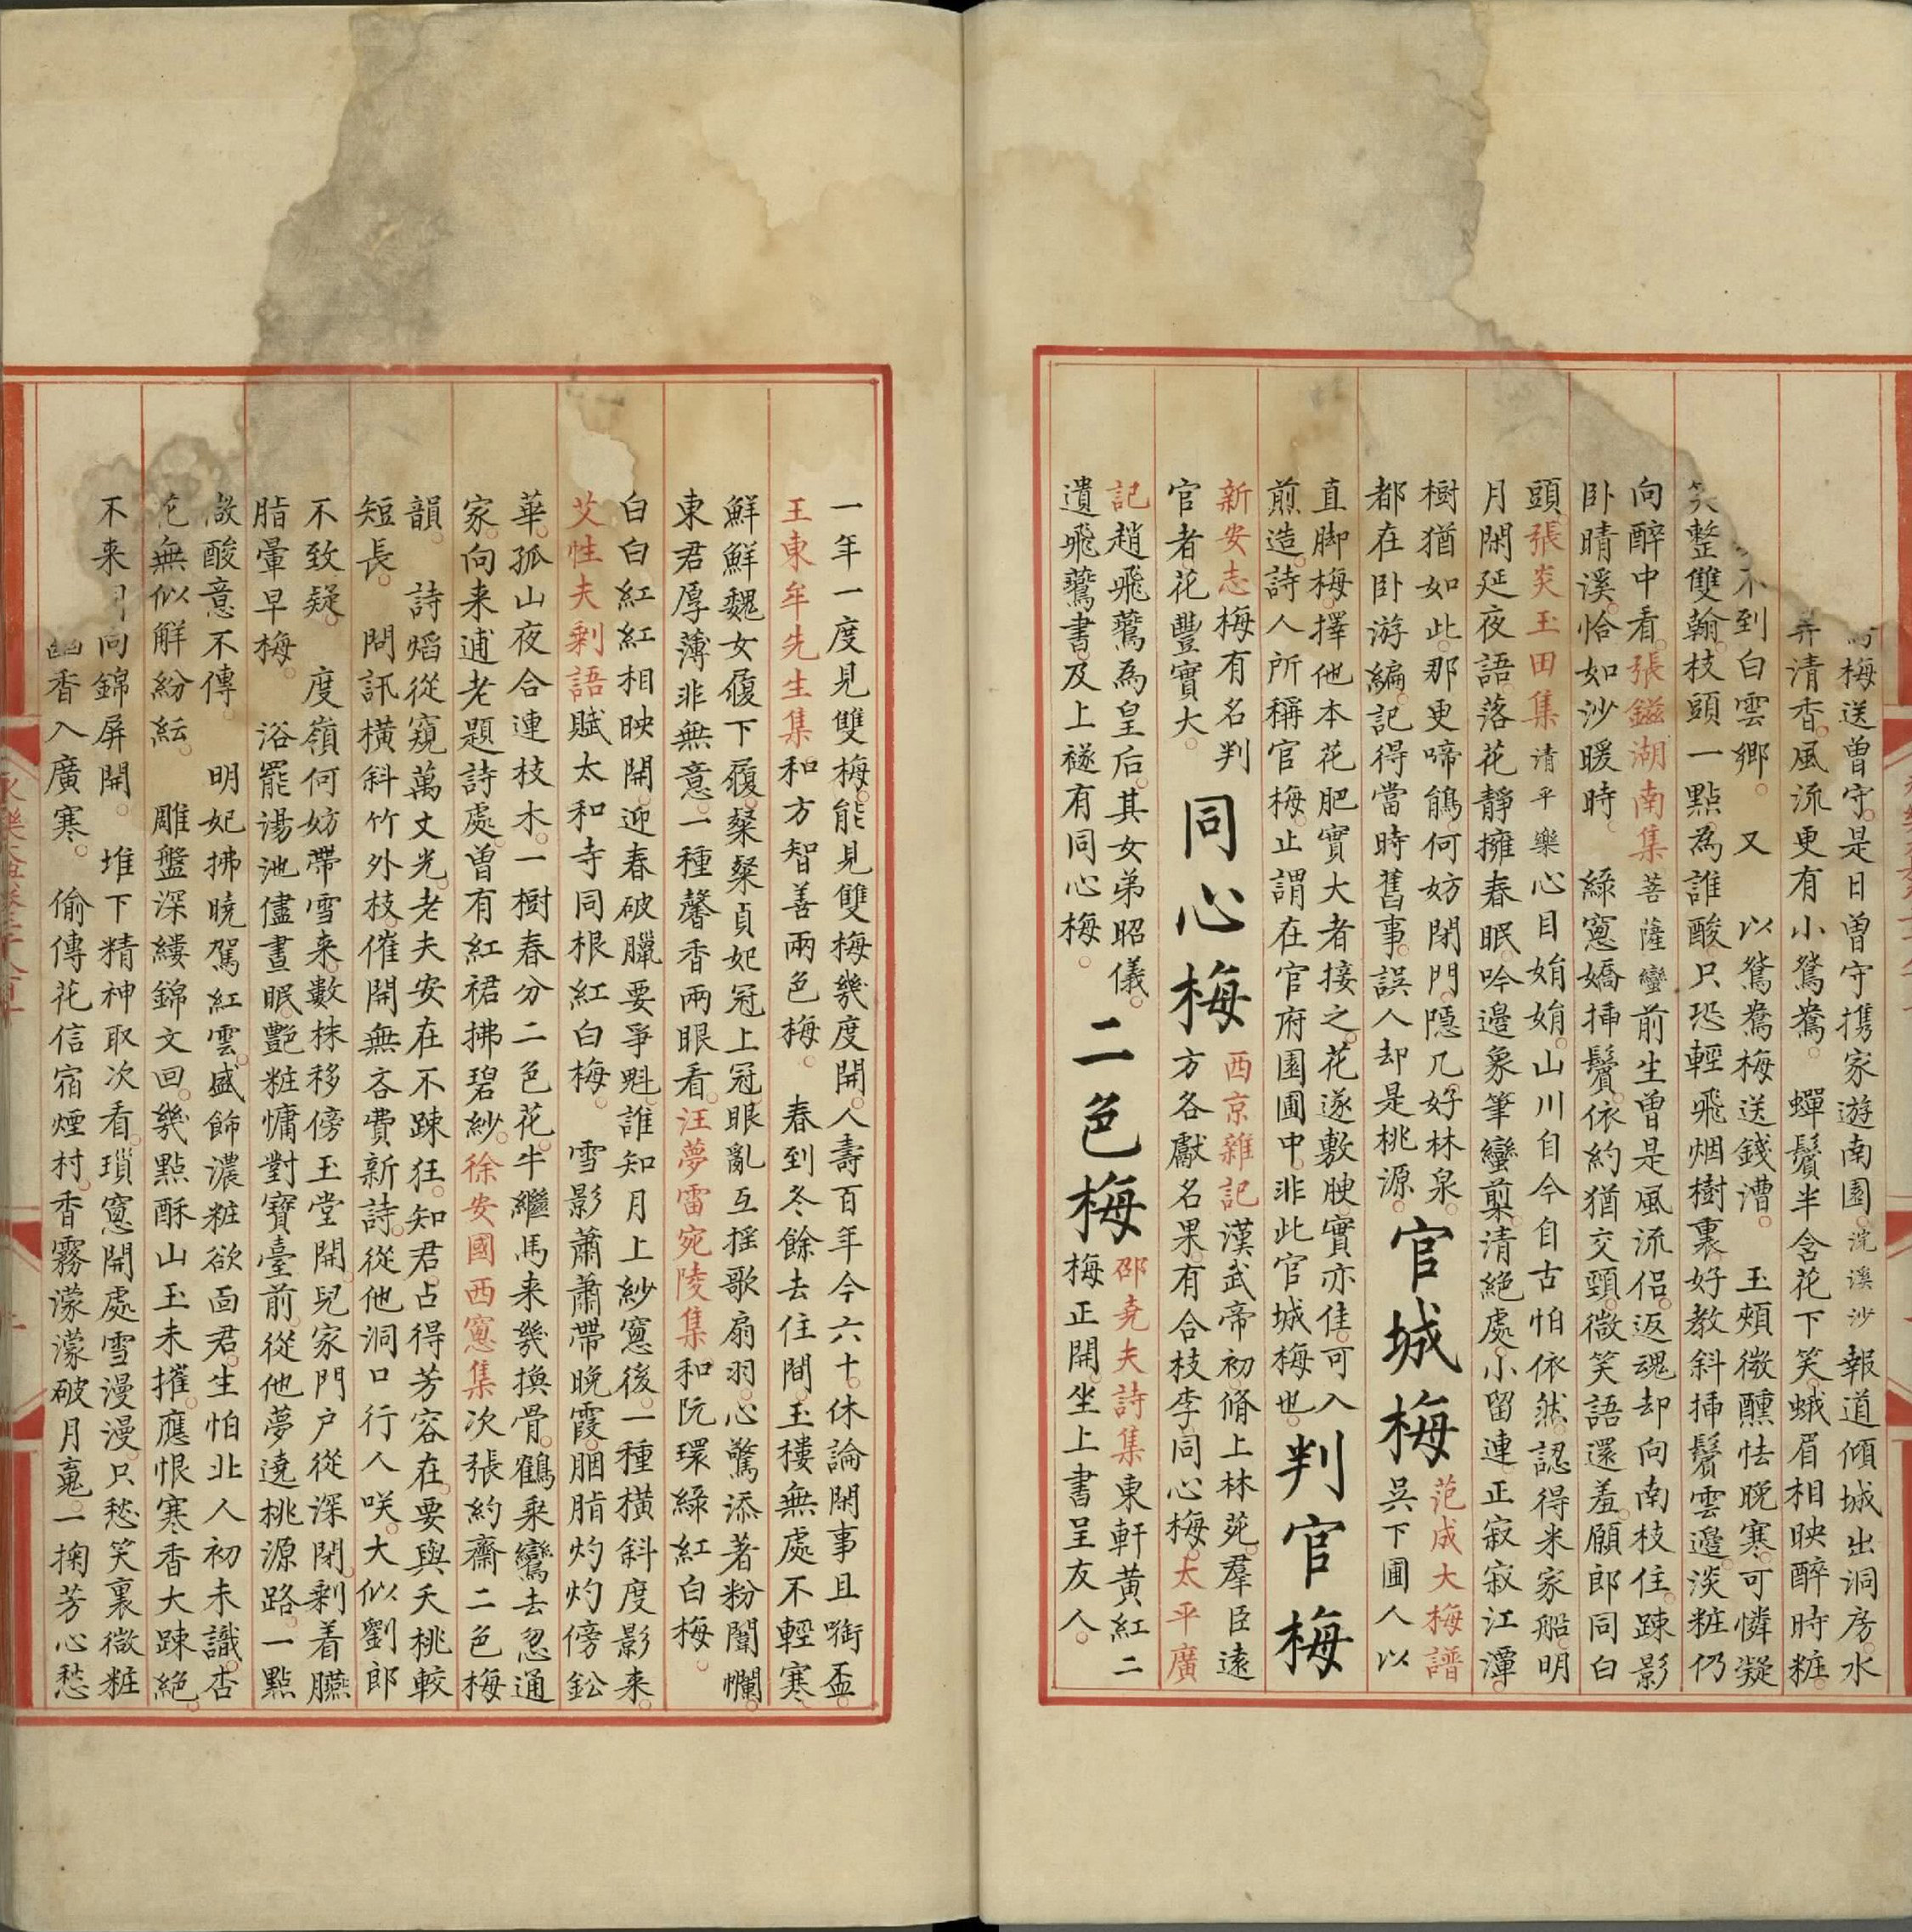 梅送曾守是日曾守携家遊南園浣溪沙報道傾城出洞房水
弄清香風流更有小鴛鴦嚲鬢半含花下笑蛾眉相映醉時粧
不到白雲鄉又以鴛鴦梅送錢漕玉頰微醺怯晚寒可憐凝
笑整雙翰枝頭一點為誰酸只恐輕飛烟樹裏好教斜插鬢雲邉淡粧仍
向醉中看張鎡湖南集菩薩蠻前生曾是風流侶返魂却向南枝住踈影
卧晴溪恰如沙暖時綠窻嬌插鬢依約猶交頸微笑語還羞願郎同白
頭張炎玉田集清平樂心目娟娟山川自今自古怕依然認得米家船明
月閑延夜語落花靜擁春眠吟邉象筆蠻牋清絕處小留連正寂寂江潭
樹猶如此那更啼鵑何妨閉門隱几好林泉
都在卧游編記得當時舊事誤人却是桃源
官城梅
范成大梅譜
吳下圃人以
直脚梅擇他本花肥實大者接之花遂敷腴實亦佳可入
煎造詩人所稱官梅止謂在官府園圃中非此官城梅也
判官梅
新安志梅有名判
官者花豐實大
同心梅
西京雜記漢武帝初脩上林苑羣臣遠
方各獻名果有合枝李同心梅太平廣
記趙飛鷰為皇后其女弟昭儀
遺飛鷰書及上襚有同心梅
二色梅
邵堯夫詩集東軒黃紅二
梅正開坐上書呈友人
一年一度見雙梅能見雙梅幾度開人壽百年今六十休論閑事且啣盃
王東牟先生集和方智善兩色梅春到冬餘去住間玉樓無處不輕寒
鮮鮮魏女復下履粲粲貞妃冠上冠眼亂互摇歌扇羽心驚添著粉闈幱
東君厚薄非無意一種馨香兩眼看汪夢雷宛陵集和阮環綠紅白梅
白白紅紅相映開迎春破臘要爭魁誰知月上紗窻後一種橫斜度影来
艾性夫剩語賦太和寺同根紅白梅雪影蕭蕭帶晚霞胭脂灼灼傍鈆
華孤山夜合連枝木一樹春分二色花牛繼馬来幾換骨鶴乘鸞去忽通
家向来逋老題詩處曾有紅裙拂碧紗徐安國西窻集次張約齋二色梅
韻詩熖從窺萬丈光老夫安在不踈狂知君占得芳容在要與夭桃較
短長問訊橫斜竹外枝催開無吝費新詩從他洞口行人咲大似劉郎
不致疑度嶺何妨帶雪来數株移傍玉堂開兒家門户從深閉剩着臙
脂暈早梅浴罷湯池儘晝眠艷粧慵對寶臺前從他夢遶桃源路一點
微酸意不傳明妃拂曉駕紅雲盛飾濃粧欲面君生怕北人初未識杏
花無似解紛紜雕盤深縷錦文回幾點酥山玉未摧應恨寒香大踈絕
不来向錦屏開堆下精神取次看瑣窻開處雪漫漫只愁笑裏微粧
幽香入廣寒偷傳花信宿煙村香霧濛濛破月䰟一掬芳心愁